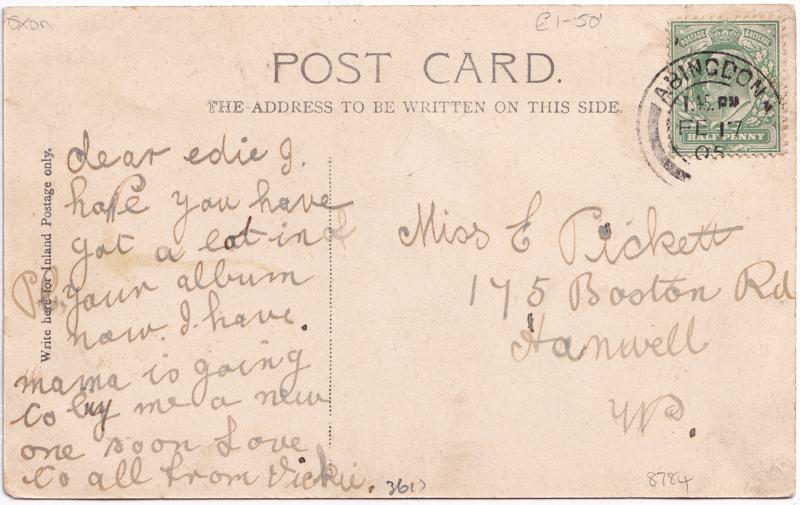 Oxon
£1-50
POST CARD.
THE ADDRESS TO BE WRITTEN ON THIS SIDE.
POSTAGE & REVENUE
HALF PENNY
ABINGDON
PM
FE 17
05
Write here for Inland Postage only.
dear edie I
hope you have
got a lot in
your album
now. I have.
mama is going
to by me a new
one soon Love
to all from Vickie.
Miss E Pickett
175 Boston Rd
Hanwell
W.
3617
8784